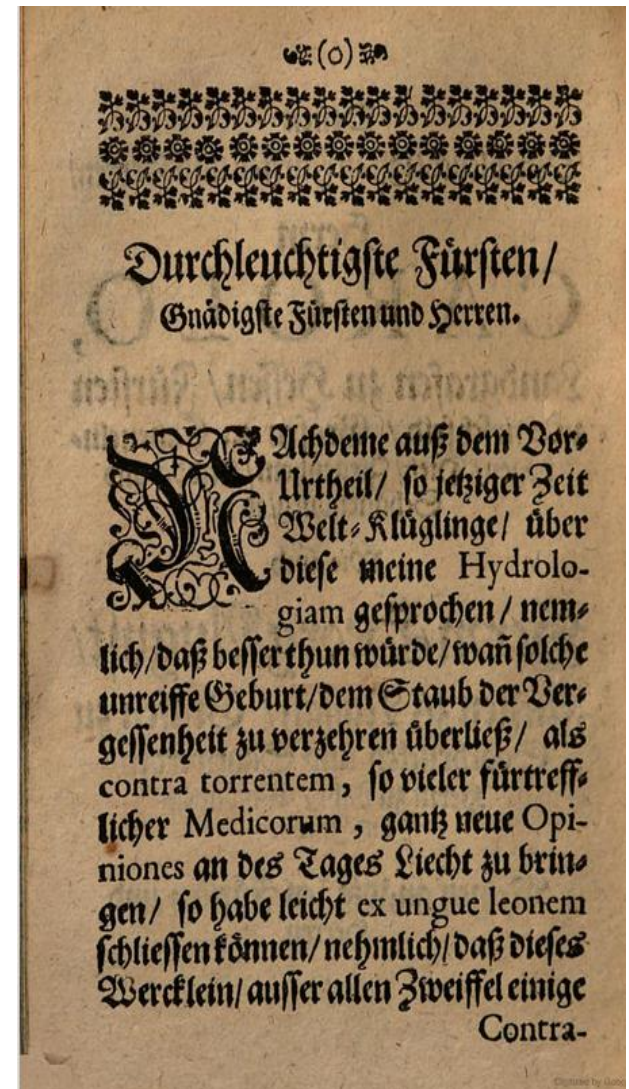 (0)
Durchleuchtigste Fürsten/
Gnädigste Fürsten und Herren.
NAchdeme auß dem Vor⸗
Urtheil/ so jetziger Zeit
Welt⸗Klüglinge/ über
diese meine Hydrolo-
giam gesprochen/ nem⸗
lich/daß besser thun würde/wañ solche
unreiffe Geburt/dem Staub der Ver⸗
gessenheit zu verzehren überließ/ als
contra torrentem, so vieler fürtreff⸗
licher Medicorum, gantz neue Opi-
niones an des Tages Liecht zu brin⸗
gen/ so habe leicht ex ungue leonem
schliessen können/nehmlich/daß dieses
Wercklein/ausser allen Zweiffel einige
Contra-